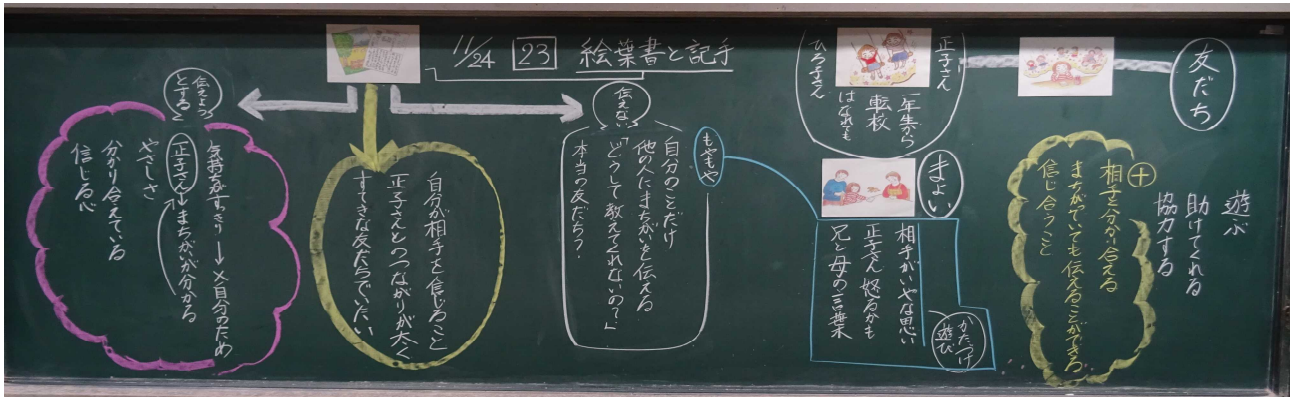 11/24 23 絵葉書と記手
友だち
遊ぶ
助けてくれる
協力する
＋
相手と分かり合える
まちがいでも伝えることができる
信じ合うこと
正子さん
ひろ子さん
一年生から
転校
はなれても
まよい
相手がいやな思い
正子さん怒るかも
兄と母の言葉
かたづけ
遊び
もやもや
伝えない
自分のことだけ
他の人にまちがいを伝える
「どうして教えてくれないの？」
本当の友だち？
自分が相手を信じること
正子さんとのつながりが太く
すてきな友だちでいたい
伝えよう
とする
気持ちがすっきり→×自分のため
正子さん→まちがいが分かる
やさしさ
分かり合えている
信じる心